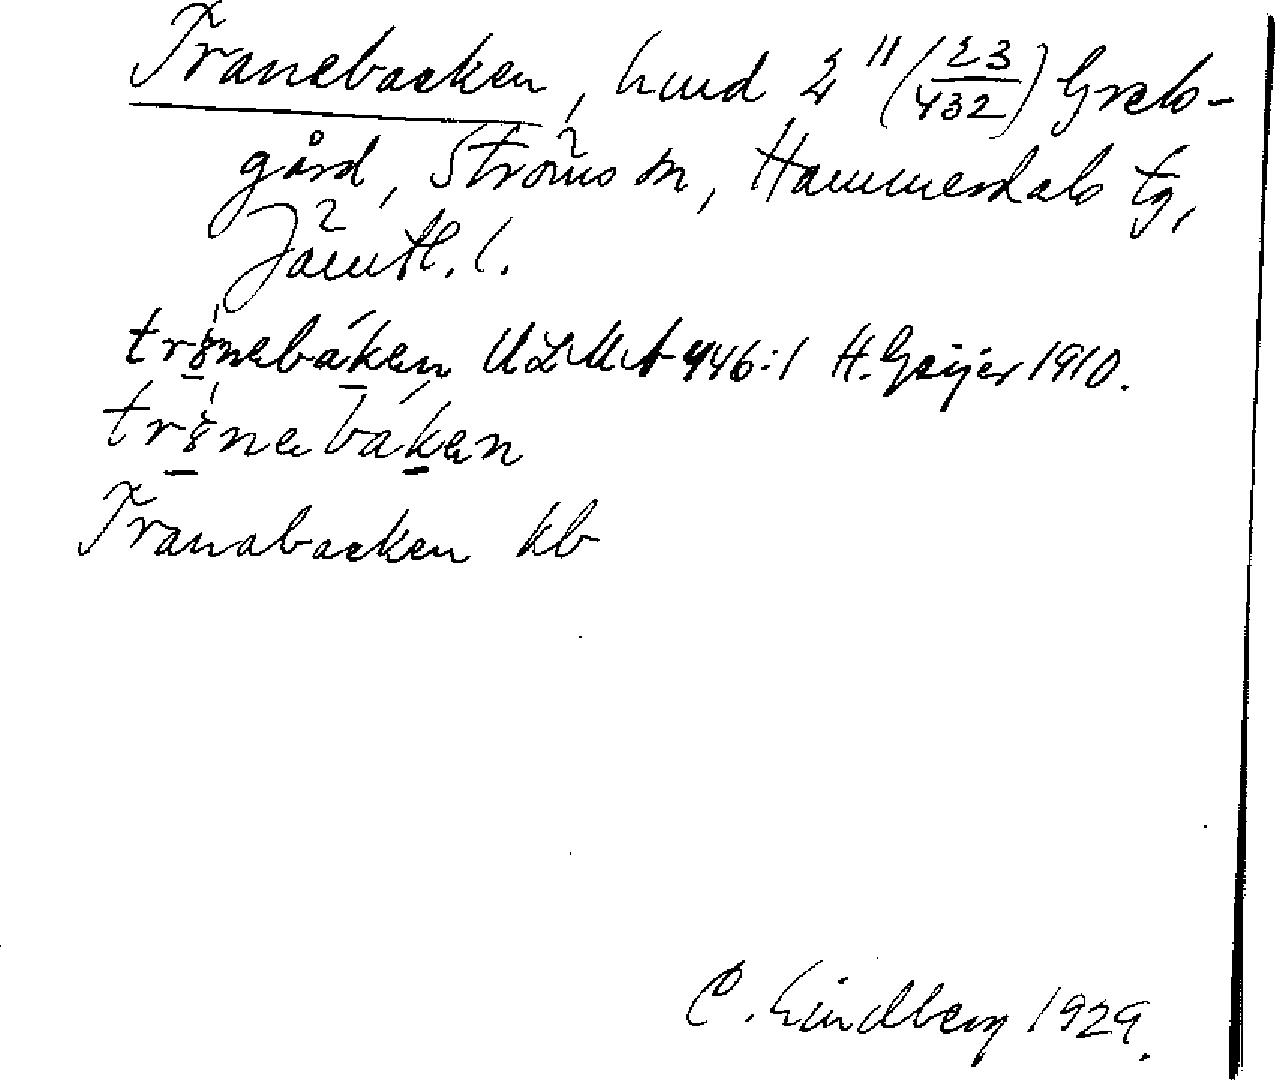 Tranebacken, hmd 2" (23/432) Grels-
gård, Ströms sn, Hammerdals tg,
Jämtl. l.
trånebàken ULMA 446:1 H. Geijer 1910.
trånebàken
Tranabacken kb
C. Lindberg 1929.